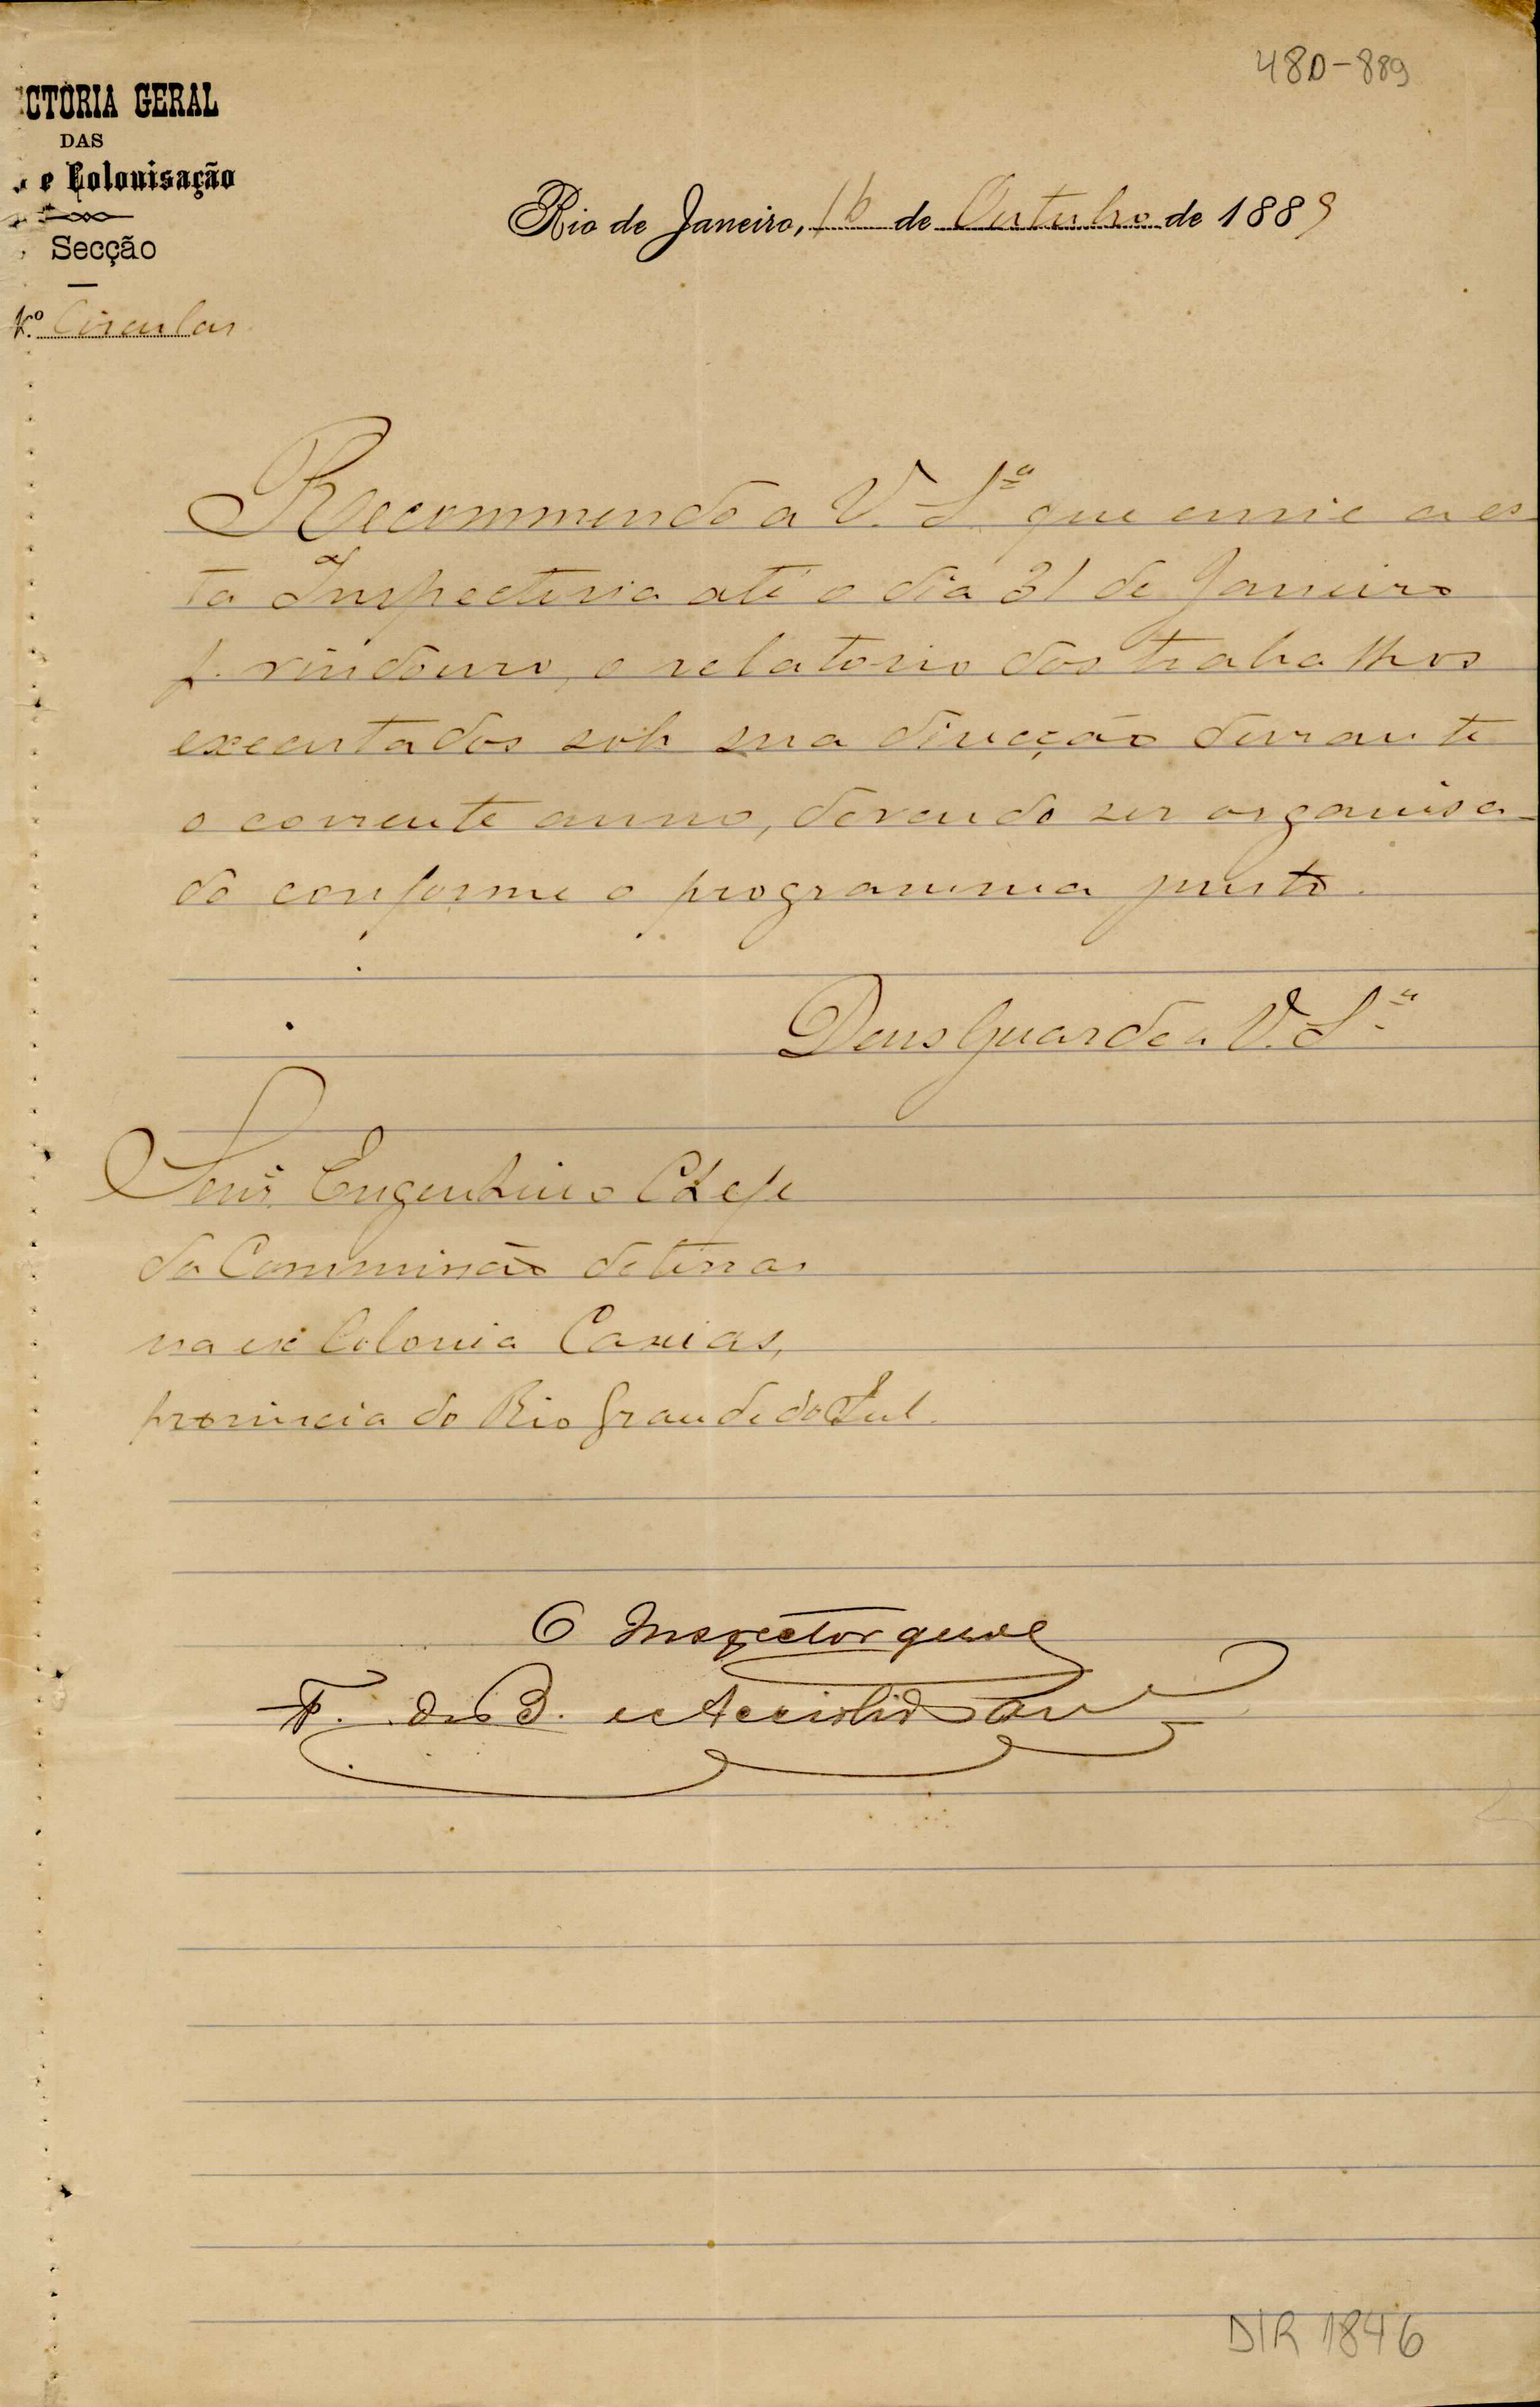 480-889
CTORIA GERAL
DAS
e Colonisação
Secção
N.º Circular
Rio de Janeiro, 16 de Outubro de 1889
Recommendo a V. Sª que envie a es
ta Inspectoria até o dia 31 de Janeiro
p. vindouro, o relatorio dos trabalhos
executados sob sua direcção durante
o corrente anno, devendo ser organisa-
do conforme o programma junto.
Deus Guarde a V. Sª
Senr. Engenheiro Chefe
da Commissão de terras
na ex Colonia Caxias,
provincia do Rio Grande do Sul.
O Inspector geral
F. de B. e Accioli de
DIR 1846